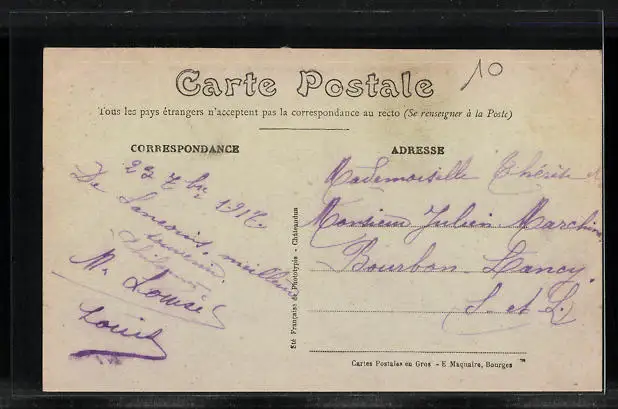 10
Carte Postale
Tous les pays étrangers n'acceptent pas la correspondance au recto (Se renseigner à la Poste)
CORRESPONDANCE
22 7bre 1917.
De Sancoins, meilleur
souvenir.
Me Louise
Louis
Sté Française de Phototypie - Châteaudun
ADRESSE
Mademoiselle Thérèse et
Monsieur Julien
Bourbon-Lancy
S. et L.
Cartes Postales en Gros - E Maquaire, Bourges